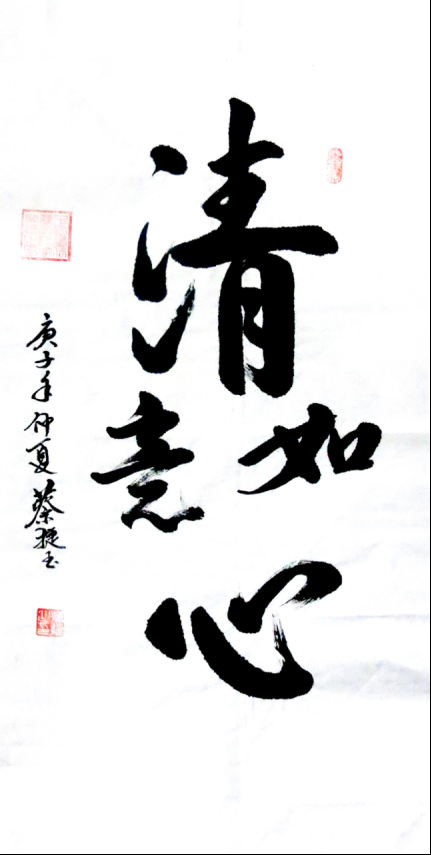 清心如意
庚子年仲夏蔡玉